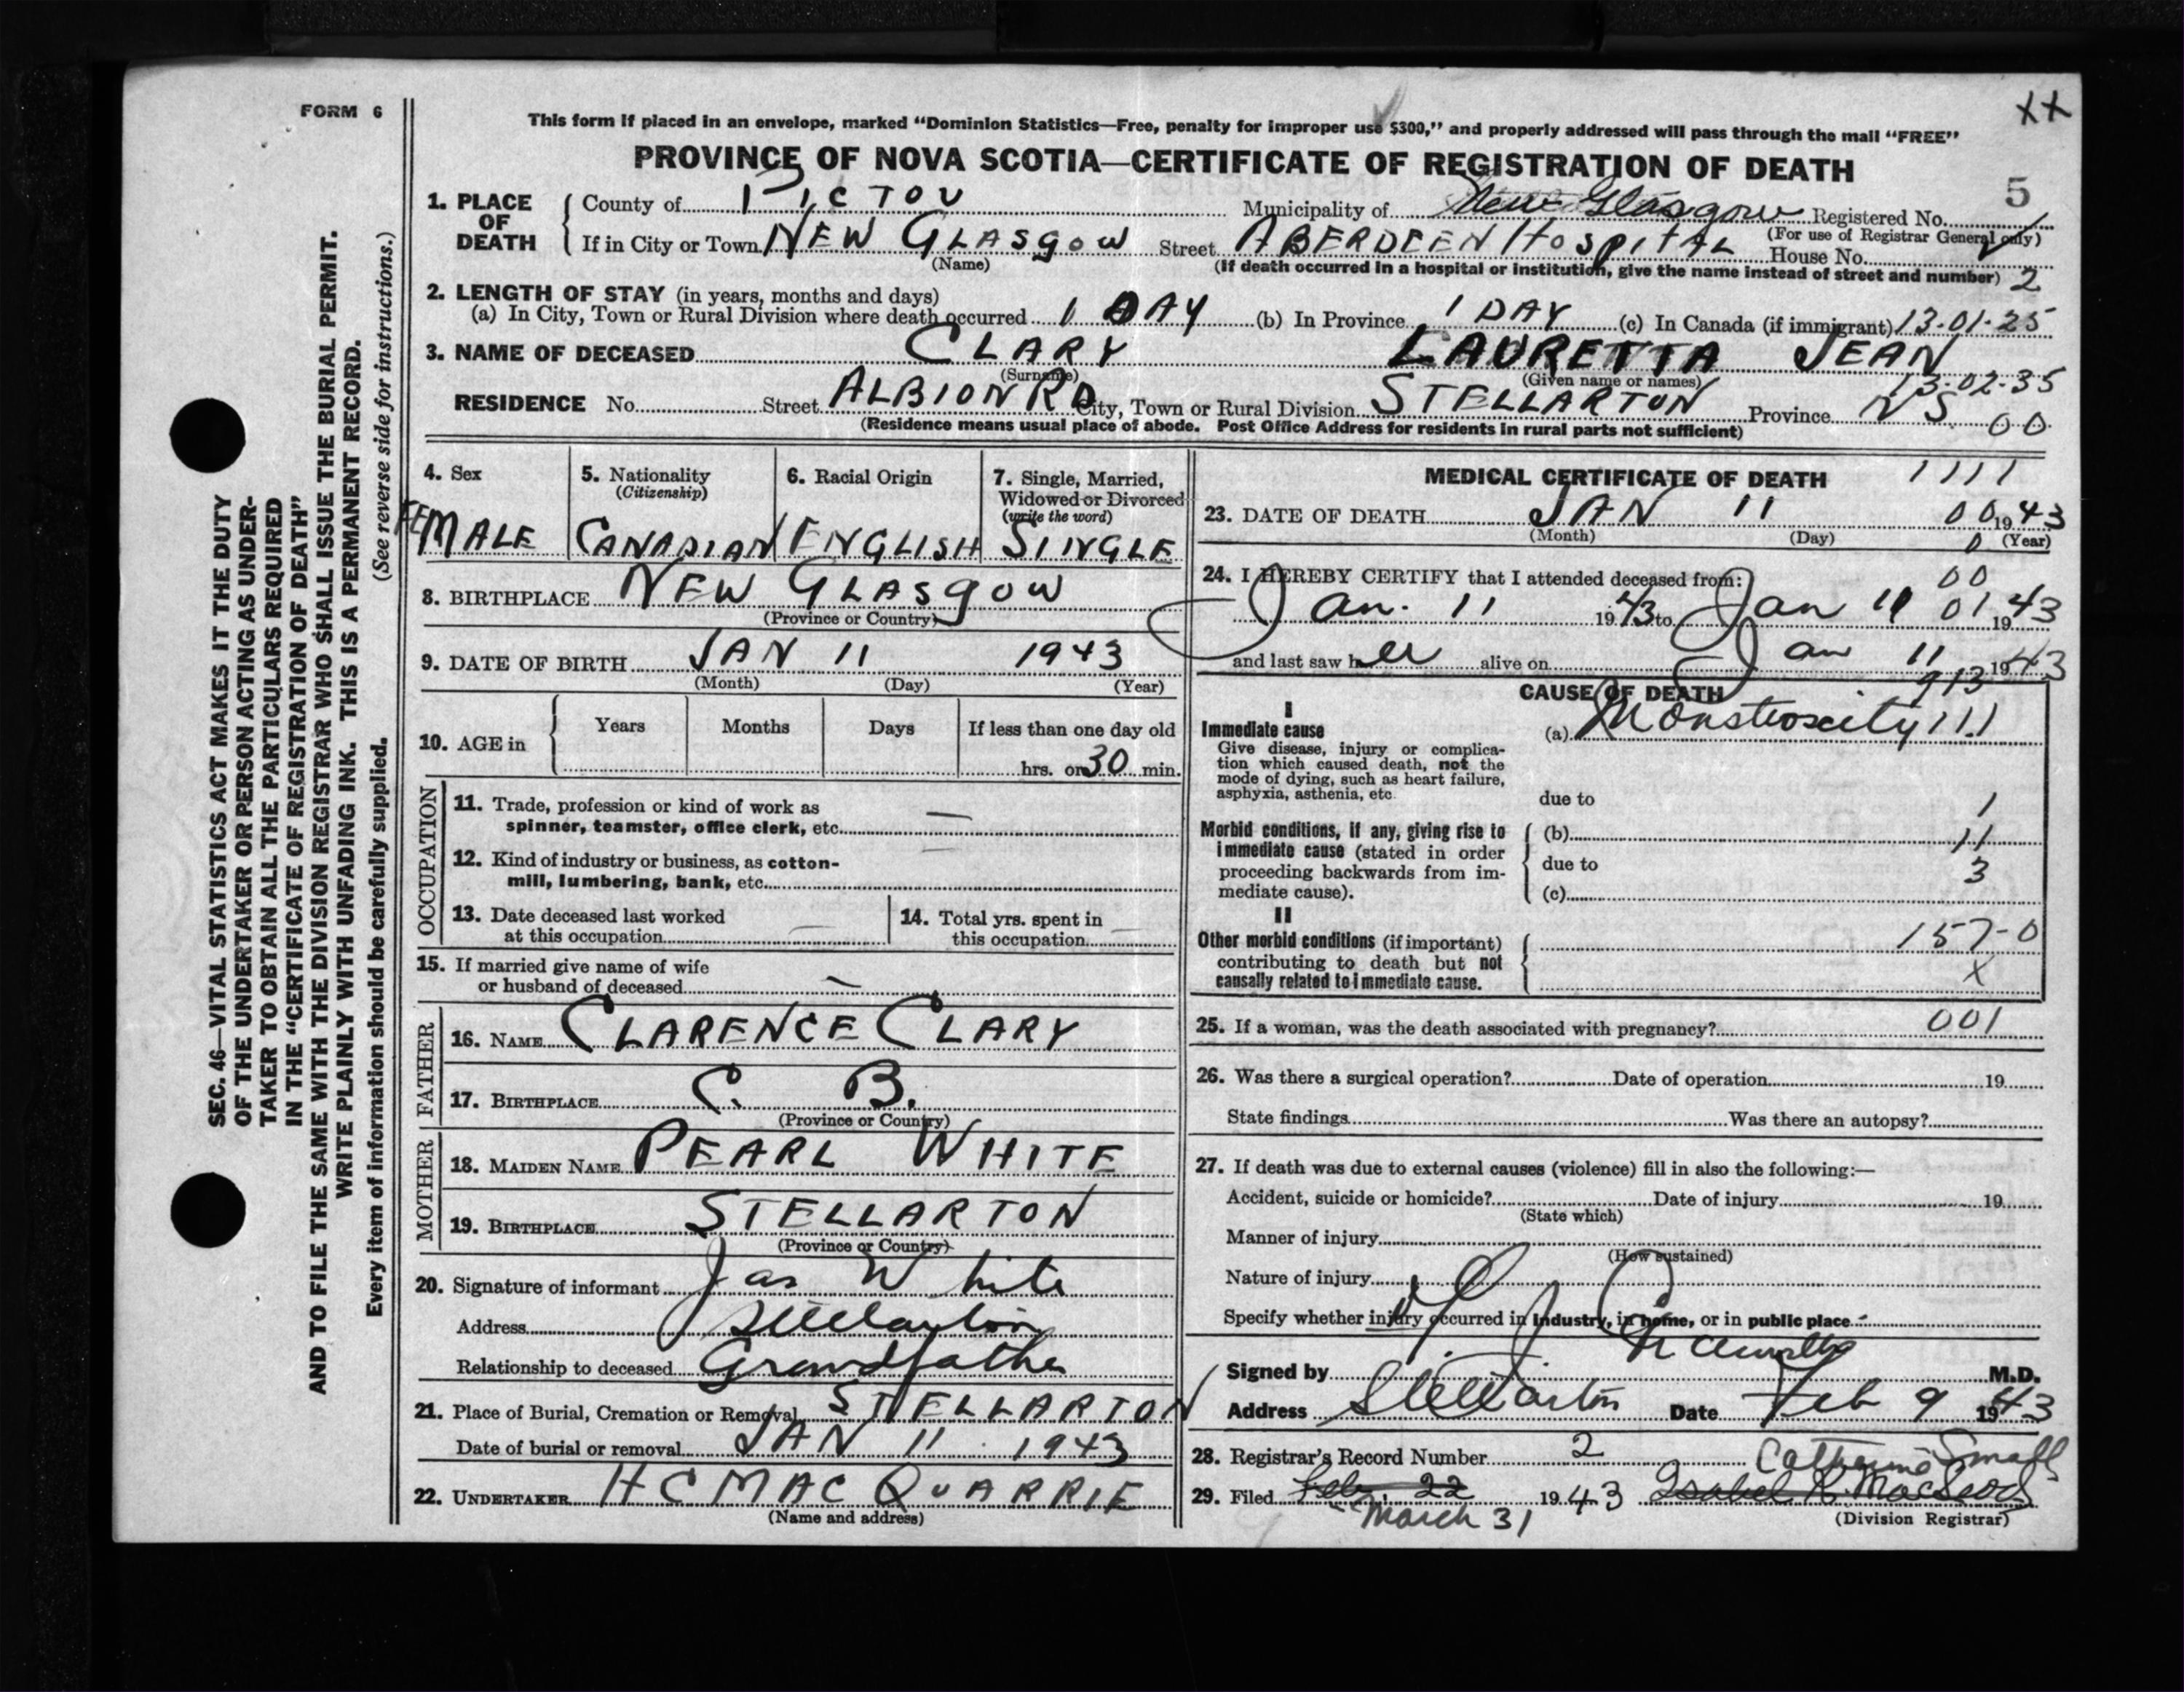 FORM 6
XX
This form if placed in an envelope, marked "Dominion Statistics—Free, penalty for improper use $300," and properly addressed will pass through the mail "FREE"
PROVINCE OF NOVA SCOTIA—CERTIFICATE OF REGISTRATION OF DEATH
5
1. PLACE OF DEATH
County of PICTOU Municipality of New Glasgow Registered No.
(For use of Registrar General only)
If in City or Town NEW GLASGOW Street ABERDEEN HOSPITAL House No.
(Name) (If death occurred in a hospital or institution, give the name instead of street and number) 2
2. LENGTH OF STAY (in years, months and days)
(a) In City, Town or Rural Division where death occurred 1 DAY (b) In Province 1 DAY (c) In Canada (if immigrant) 13-01-25
3. NAME OF DECEASED CLARY LAURETTA JEAN
(Surname) (Given name or names) 13-02-35
RESIDENCE No. Street ALBION RD City, Town or Rural Division STELLARTON Province N S. 00
(Residence means usual place of abode. Post Office Address for residents in rural parts not sufficient)
4. Sex
FEMALE
5. Nationality
(Citizenship)
CANADIAN
6. Racial Origin
ENGLISH
7. Single, Married, Widowed or Divorced
(write the word)
SINGLE
8. BIRTHPLACE NEW GLASGOW
(Province or Country)
9. DATE OF BIRTH JAN 11 1943
(Month) (Day) (Year)
10. AGE in Years Months Days If less than one day old
hrs. or 30 min.
OCCUPATION
11. Trade, profession or kind of work as
spinner, teamster, office clerk, etc. —
12. Kind of industry or business, as cotton-
mill, lumbering, bank, etc. —
13. Date deceased last worked
at this occupation —
14. Total yrs. spent in
this occupation —
15. If married give name of wife
or husband of deceased —
FATHER
16. NAME CLARENCE CLARY
17. BIRTHPLACE C. B.
(Province or Country)
MOTHER
18. MAIDEN NAME PEARL WHITE
19. BIRTHPLACE STELLARTON
(Province or Country)
20. Signature of informant Jas White
Address Stellarton
Relationship to deceased Grandfather
21. Place of Burial, Cremation or Removal STELLARTON
Date of burial or removal JAN 11 1943
22. UNDERTAKER H C MAC QUARRIE
(Name and address)
MEDICAL CERTIFICATE OF DEATH 1111
23. DATE OF DEATH JAN 11 00 1943
(Month) (Day) 0 (Year)
24. I HEREBY CERTIFY that I attended deceased from: 00
Jan. 11 1943 to Jan 11 01 1943
and last saw her alive on Jan 11 1943
CAUSE OF DEATH 913
I
Immediate cause
Give disease, injury or complica-
tion which caused death, not the
mode of dying, such as heart failure,
asphyxia, asthenia, etc.
(a) Monstrosity 111
due to 1
Morbid conditions, if any, giving rise to
immediate cause (stated in order
proceeding backwards from im-
mediate cause).
(b) 11
due to 3
(c)
II
Other morbid conditions (if important)
contributing to death but not
causally related to immediate cause.
157-0
X
25. If a woman, was the death associated with pregnancy? 001
26. Was there a surgical operation? Date of operation 19
State findings Was there an autopsy?
27. If death was due to external causes (violence) fill in also the following:—
Accident, suicide or homicide? Date of injury 19
(State which)
Manner of injury
(How sustained)
Nature of injury
Specify whether injury occurred in Industry, in home, or in public place
Signed by M.D.
Address Stellarton Date Feb 9 1943
28. Registrar's Record Number 2 Catherine Small
29. Filed Feb. 22 1943 Isabel R. MacLeod
March 31 (Division Registrar)
SEC. 46—VITAL STATISTICS ACT MAKES IT THE DUTY
OF THE UNDERTAKER OR PERSON ACTING AS UNDER-
TAKER TO OBTAIN ALL THE PARTICULARS REQUIRED
IN THE "CERTIFICATE OF REGISTRATION OF DEATH"
AND TO FILE THE SAME WITH THE DIVISION REGISTRAR WHO SHALL ISSUE THE BURIAL PERMIT.
WRITE PLAINLY WITH UNFADING INK. THIS IS A PERMANENT RECORD.
Every item of information should be carefully supplied. (See reverse side for instructions.)